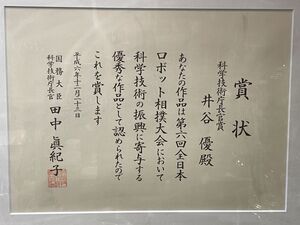 賞状
科学技術庁長官賞
井谷優殿
あなたの作品は第六回全日本
ロボット相撲大会において
科学技術の振興に寄与する
優秀な作品として認められたので
これを賞します
平成六年十二月二十三日
国務大臣
科学技術庁長官
田中眞紀子